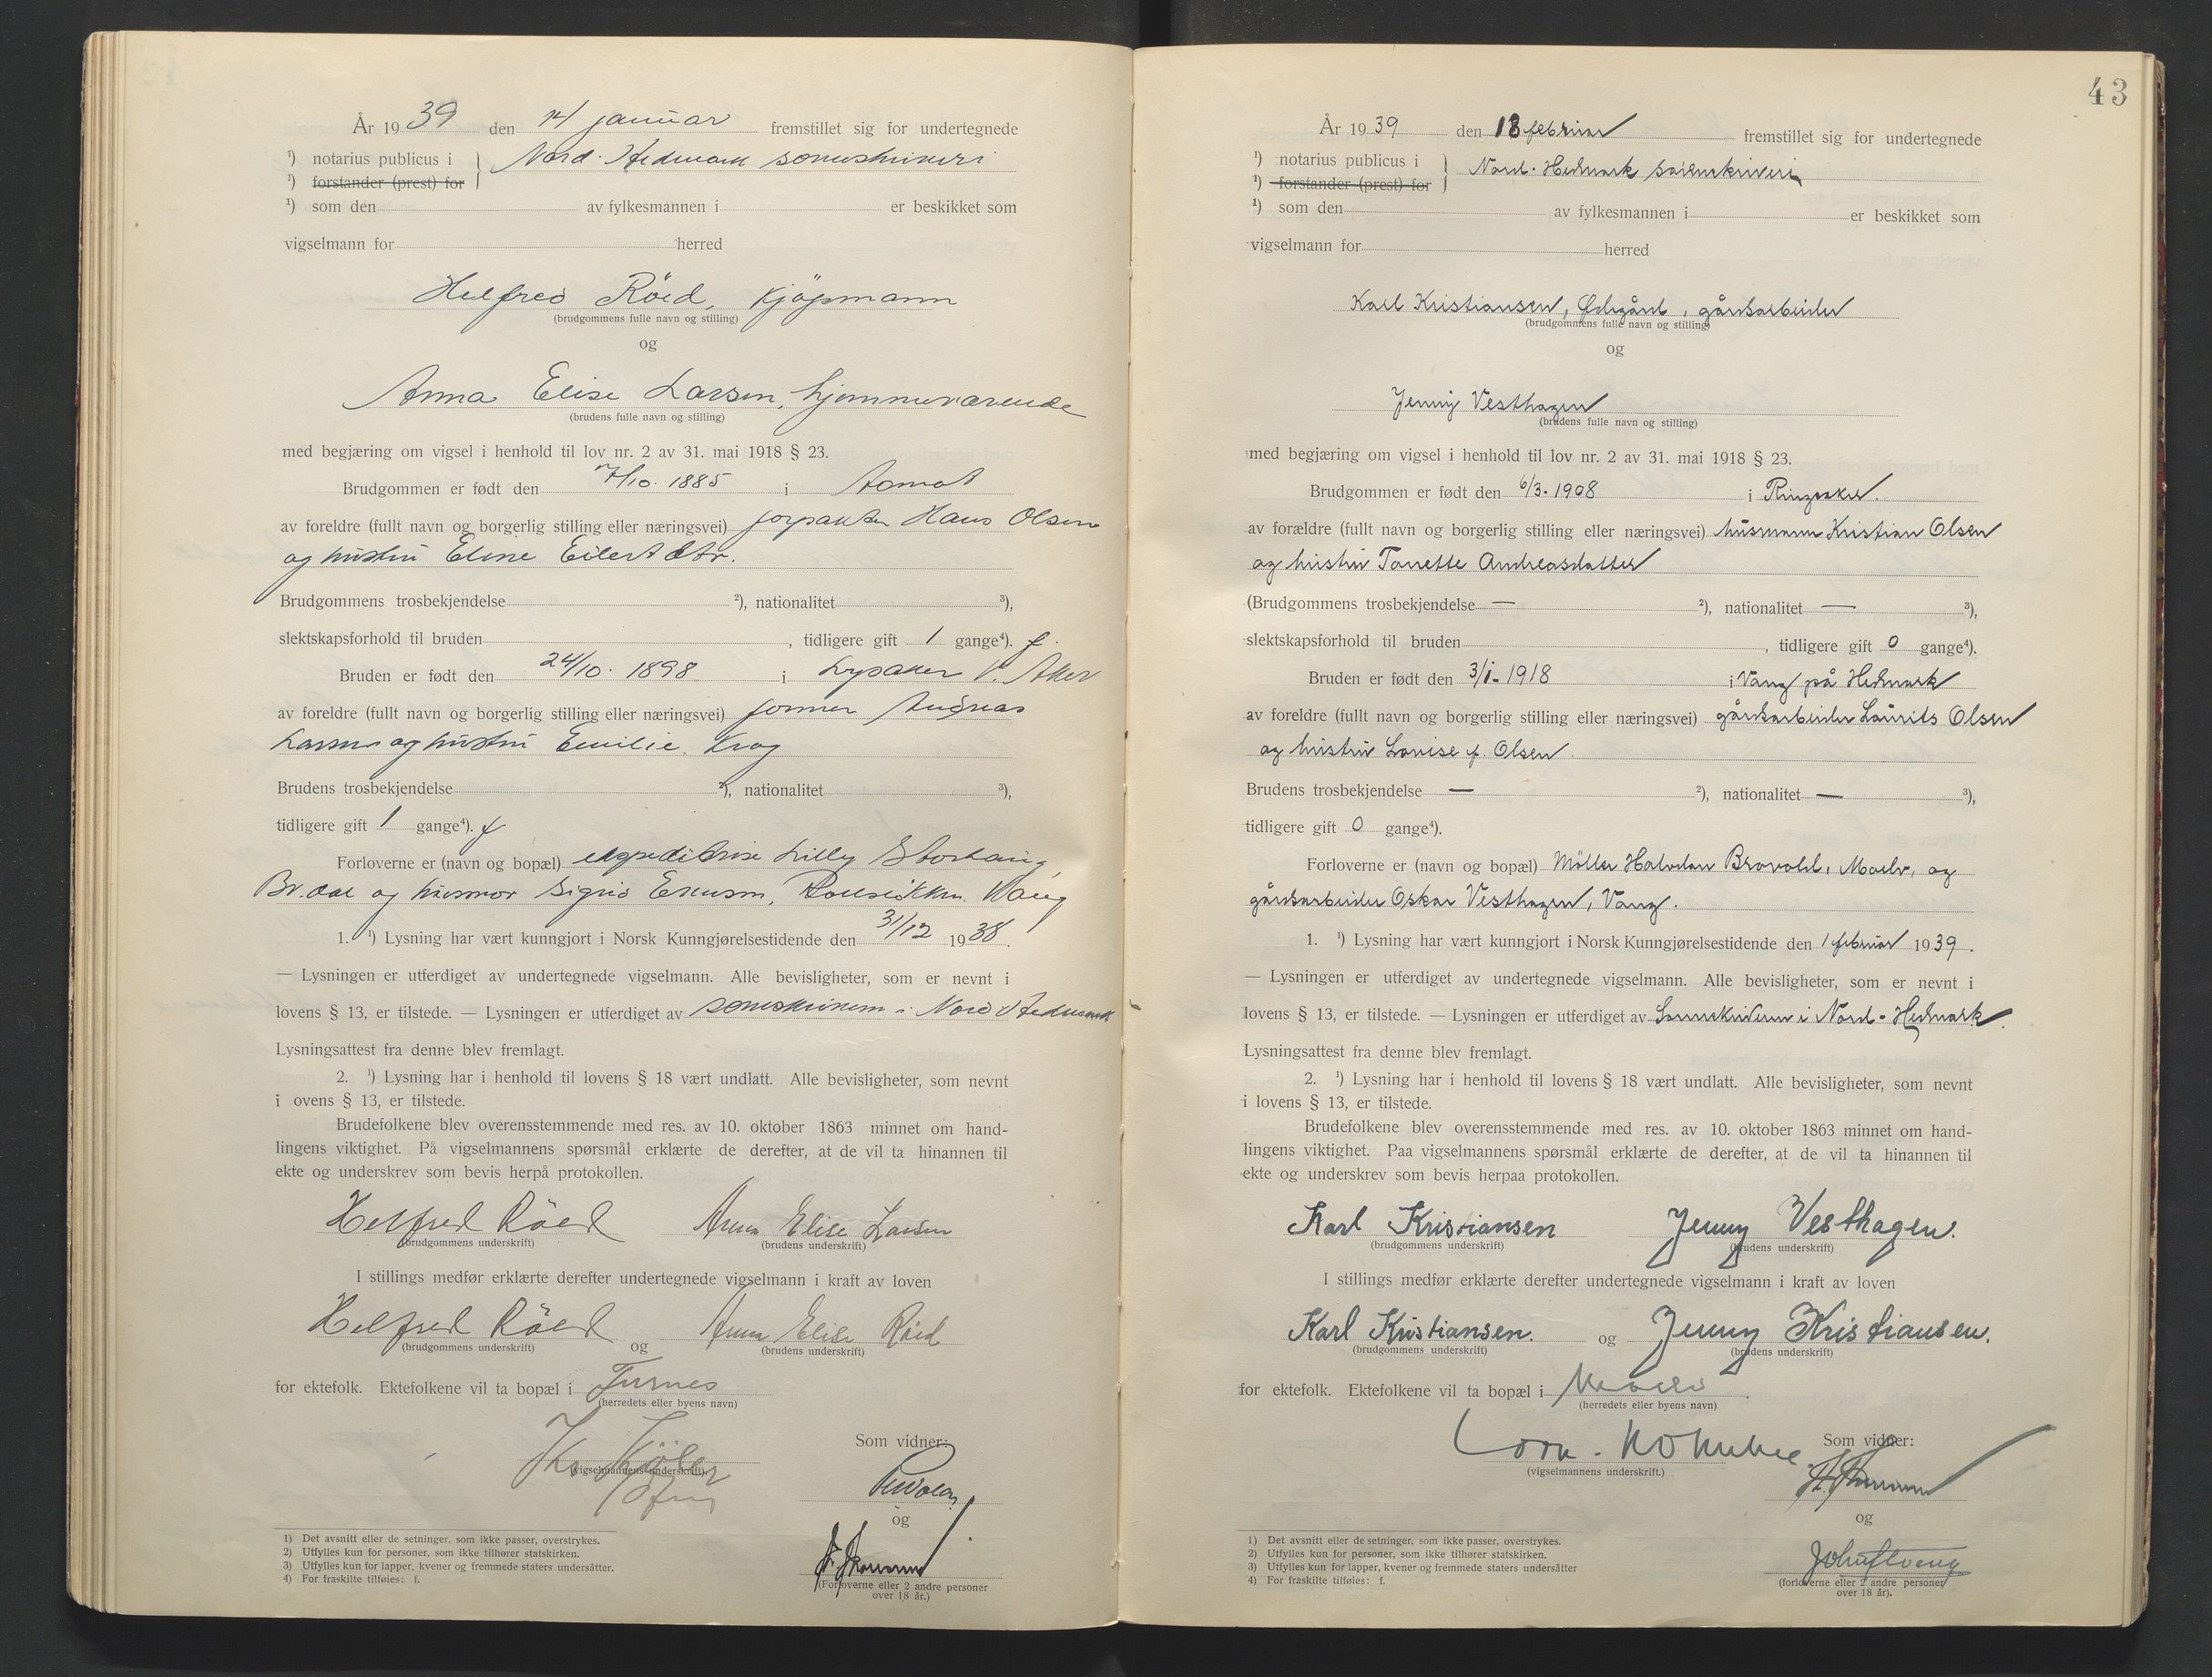 År 19 39 den 14 januar fremstillet sig for undertegnede
¹) notarius publicus i } Nord-Hedmark sorenskriveri
¹) forstander (prest) for
¹) som den av fylkesmannen i er beskikket som
vigselmann for herred
Helfred Röed, kjöpmann
(brudgommens fulle navn og stilling)
og
Anna Elise Larsen, hjemmeværende
(brudens fulle navn og stilling)
med begjæring om vigsel i henhold til lov nr. 2 av 31. mai 1918 § 23.
Brudgommen er født den 7/10. 1885 i
av foreldre (fullt navn og borgerlig stilling eller næringsvei) forpakter Hans Olsen
og hustru Eline Eilertdtr.
Brudgommens trosbekjendelse ²), nationalitet ³),
slektskapsforhold til bruden , tidligere gift 1 gange⁴). f
Bruden er født den 24/10. 1898 i Lysaker V. Aker
av foreldre (fullt navn og borgerlig stilling eller næringsvei) former
Larsen og hustru Emilie Krog
Brudens trosbekjendelse ²), nationalitet ³),
tidligere gift 1 gange⁴). f
Forloverne er (navn og bopæl) ekspeditrise Lilly Storhaug,
Br.dal og husmor Sigrid Vang
1. ¹) Lysning har vært kunngjort i Norsk Kunngjørelsestidende den 31/12 19 38.
— Lysningen er utferdiget av undertegnede vigselmann. Alle bevisligheter, som er nevnt i
lovens § 13, er tilstede. — Lysningen er utferdiget av sorenskriveren i Nord Hedmark
Lysningsattest fra denne blev fremlagt.
2. ¹) Lysning har i henhold til lovens § 18 vært undlatt. Alle bevisligheter, som nevnt
i ovens § 13, er tilstede.
Brudefolkene blev overensstemmende med res. av 10. oktober 1863 minnet om hand-
lingens viktighet. På vigselmannens spørsmål erklærte de derefter, at de vil ta hinannen til
ekte og underskrev som bevis herpå protokollen.
Helfred Röed Anna Elise Larsen
(brudgommens underskrift) (brudens underskrift)
I stillings medfør erklærte derefter undertegnede vigselmann i kraft av loven
Helfred Röed og Anna Elise Röed
(brudgommens underskrift) (brudens underskrift)
for ektefolk. Ektefolkene vil ta bopæl i Furnes
(herredets eller byens navn)
Som vidner:
(vigselmannens underskrift).
og
(Forloverne eller 2 andre personer
over 18 år.)
1) Det avsnitt eller de setninger, som ikke passer, overstrykes.
2) Utfylles kun for personer, som ikke tilhører statskirken.
3) Utfylles kun for lapper, kvener og fremmede staters undersåtter.
4) For fraskilte tilføies: f.
43
År 19 39 den 18 februar fremstillet sig for undertegnede
¹) notarius publicus i } Nord-Hedmark sorenskriveri
¹) forstander (prest) for
¹) som den av fylkesmannen i er beskikket som
vigselmann for herred
Karl Kristiansen, Ødegård, gårdsarbeider
(brudgommens fulle navn og stilling)
og
Jenny Vesthagen
(brudens fulle navn og stilling)
med begjæring om vigsel i henhold til lov nr. 2 av 31. mai 1918 § 23.
Brudgommen er født den 6/3-1908 i Ringsaker.
av forældre (fullt navn og borgerlig stilling eller næringsvei) husmann Kristian Olsen
og hustru Tonette Andreasdatter
(Brudgommens trosbekjendelse — ²), nationalitet — ³),
slektskapsforhold til bruden , tidligere gift 0 gange⁴).
Bruden er født den 3/1-1918 i Vang på Hedmark
av foreldre (fullt navn og borgerlig stilling eller næringsvei) gårdsarbeider Laurits Olsen
og hustru Lovise f. Olsen
Brudens trosbekjendelse — ²), nationalitet — ³),
tidligere gift 0 gange⁴).
Forloverne er (navn og bopæl) Möller Halvdan Brovold, Moelv, og
gårdsarbeider Oskar Vesthagen, Vang.
1. ¹) Lysning har vært kunngjort i Norsk Kunngjørelsestidende den 1 februar 19 39.
— Lysningen er utferdiget av undertegnede vigselmann. Alle bevisligheter, som er nevnt i
lovens § 13, er tilstede. — Lysningen er utferdiget av Sorenskriveren i Nord-Hedmark.
Lysningsattest fra denne blev fremlagt.
2. ¹) Lysning har i henhold til lovens § 18 vært undlatt. Alle bevisligheter, som nevnt
i lovens § 13, er tilstede.
Brudefolkene blev overensstemmende med res. av 10. oktober 1863 minnet om hand-
lingens viktighet. Paa vigselmannens spørsmål erklærte de derefter, at de vil ta hinannen til
ekte og underskrev som bevis herpaa protokollen.
Karl Kristiansen Jenny Vesthagen.
(brudgommens underskrift) (brudens underskrift)
I stillings medfør erklærte derefter undertegnede vigselmann i kraft av loven
Karl Kristiansen. og Jenny Kristiansen.
(brudgommens underskrift) (brudens underskrift)
for ektefolk. Ektefolkene vil ta bopæl i
(herredets eller byens navn)
Som vidner:
(vigselmannens underskrift.)
og
(forloverne eller 2 andre personer
over 18 år).
1) Det avsnitt eller de setninger, som ikke passer, overstrykes.
2) Utfylles kun for personer, som ikke tilhører statskirken.
3) Utfylles kun for lapper, kvener og fremmede staters undersåtter
4) For fraskilte tilføies: f.